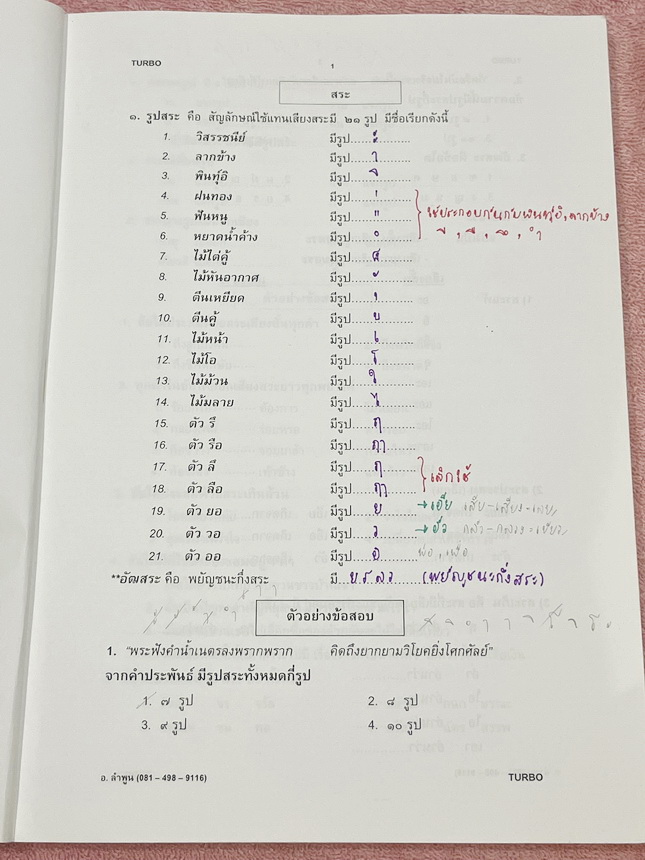 TURBO
1
สระ
๑. รูปสระ คือ สัญลักษณ์ใช้แทนเสียงสระมี ๒๑ รูป มีชื่อเรียกดังนี้
1. วิสรรชนีย์ มีรูป.....ะ..........
2. ลากข้าง มีรูป.....า..........
3. พินทุ์อิ มีรูป.....ิ..........
4. ฝนทอง มีรูป.....'..........
5. ฟันหนู มีรูป....."..........
6. หยาดน้ำค้าง มีรูป.....ํ..........
ใช้ประกอบกันกับพินทุ์อิ, ลากข้าง
ี , ื , ึ , ำ
7. ไม้ไต่คู้ มีรูป.....็..........
8. ไม้หันอากาศ มีรูป.....ั..........
9. ตีนเหยียด มีรูป.....ุ..........
10. ตีนคู้ มีรูป.....ู..........
11. ไม้หน้า มีรูป.....เ..........
12. ไม้โอ มีรูป.....โ..........
13. ไม้ม้วน มีรูป.....ใ..........
14. ไม้มลาย มีรูป.....ไ..........
15. ตัว รึ มีรูป.....ฤ..........
16. ตัว รือ มีรูป.....ฤๅ..........
17. ตัว ลึ มีรูป.....ฦ..........
18. ตัว ลือ มีรูป.....ฦๅ..........
เลิกใช้
19. ตัว ยอ มีรูป.....ย..........→เอีย
20. ตัว วอ มีรูป.....ว..........→อัว
21. ตัว ออ มีรูป.....อ..........
**อัฒสระ คือ พยัญชนะกึ่งสระ มี....ย ร ล ว (พยัญชนะกึ่งสระ)
ตัวอย่างข้อสอบ
1. "พระฟังคำน้ำเนตรลงพรากพราก คิดถึงยากยามวิโยคยิ่งโศกศัลย์"
จากคำประพันธ์ มีรูปสระทั้งหมดกี่รูป
1. ๗ รูป 2. ๘ รูป
3. ๙ รูป 4. ๑๐ รูป
อ. ลำพูน (081 – 498 – 9116) TURBO